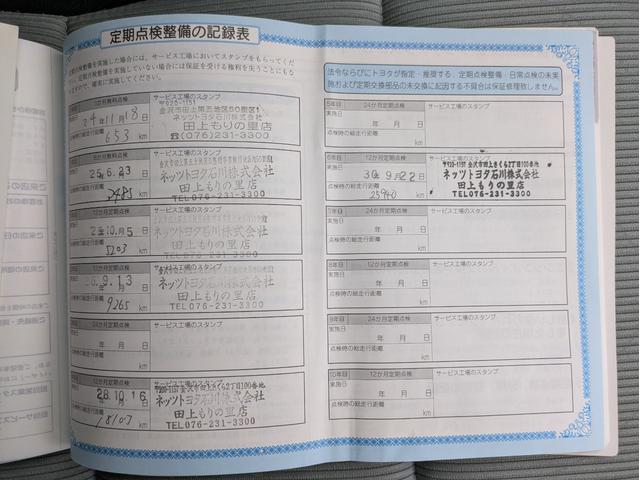 定期点検整備の記録表
定期点検整備を実施した場合には、サービス工場においてスタンプをもらってくだ
定期点検整備を実施していない場合には保証を受ける権利を失うことにもな
ますので、確実に実施してください。
1か月無料点検
サービス工場のスタンプ
〒920-1151
金沢市田上第五地区50街区1
ネッツトヨタ石川株式会社
田上もりの里店
☎(076)231-3300
24年 1月 18日
点検時の総走行距離
653 km
6か月無料点検
サービス工場のスタンプ
25.6.23
ネッツトヨタ石川株式会社
田上もりの里店
TEL076-231-3300
km
12か月定期点検
サービス工場のスタンプ
ネッツトヨタ石川株式会社
田上もりの里店
TEL076-231-3300
点検時の総走行距離
5203 km
サービス工場のスタンプ
9.13
ネッツトヨタ石川株式会社
田上もりの里店
TEL076-231-3300
点検時の総走行距離
9265 km
24か月定期点検
サービス工場のスタンプ
年 月 日
点検時の総走行距離
km
12か月定期点検
サービス工場のスタンプ
〒920-1151 金沢市田上さくら2丁目100番地
28.10.16
ネッツトヨタ石川株式会社
田上もりの里店
TEL076-231-3300
18107 km
法令ならびにトヨタが指定・推奨する、定期点検整備・日常点検の未実
施および定期交換部品の未交換に起因する不具合は保証修理致しません。
5年目 24か月定期点検
サービス工場のスタンプ
実施日
年 月 日
点検時の総走行距離
km
6年目 12か月定期点検
サービス工場のスタンプ
実施日
〒920-1151 金沢市田上さくら2丁目100番地
30年9月22日
ネッツトヨタ石川株式会社
田上もりの里店
TEL076-231-3300
点検時の総走行距離
25940 km
7年目 24か月定期点検
サービス工場のスタンプ
実施日
年 月 日
点検時の総走行距離
km
8年目 12か月定期点検
サービス工場のスタンプ
実施日
年 月 日
点検時の総走行距離
km
9年目 24か月定期点検
サービス工場のスタンプ
実施日
年 月 日
点検時の総走行距離
km
10年目 12か月定期点検
サービス工場のスタンプ
実施日
年 月 日
点検時の総走行距離
km